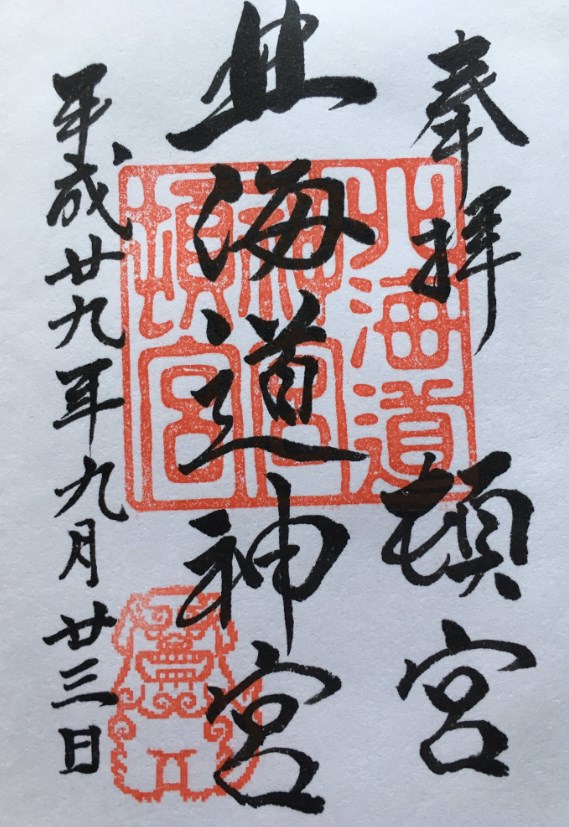 奉拝 頓宮
北海道神宮
平成廿九年九月廿三日
北海道
神宮
頓宮